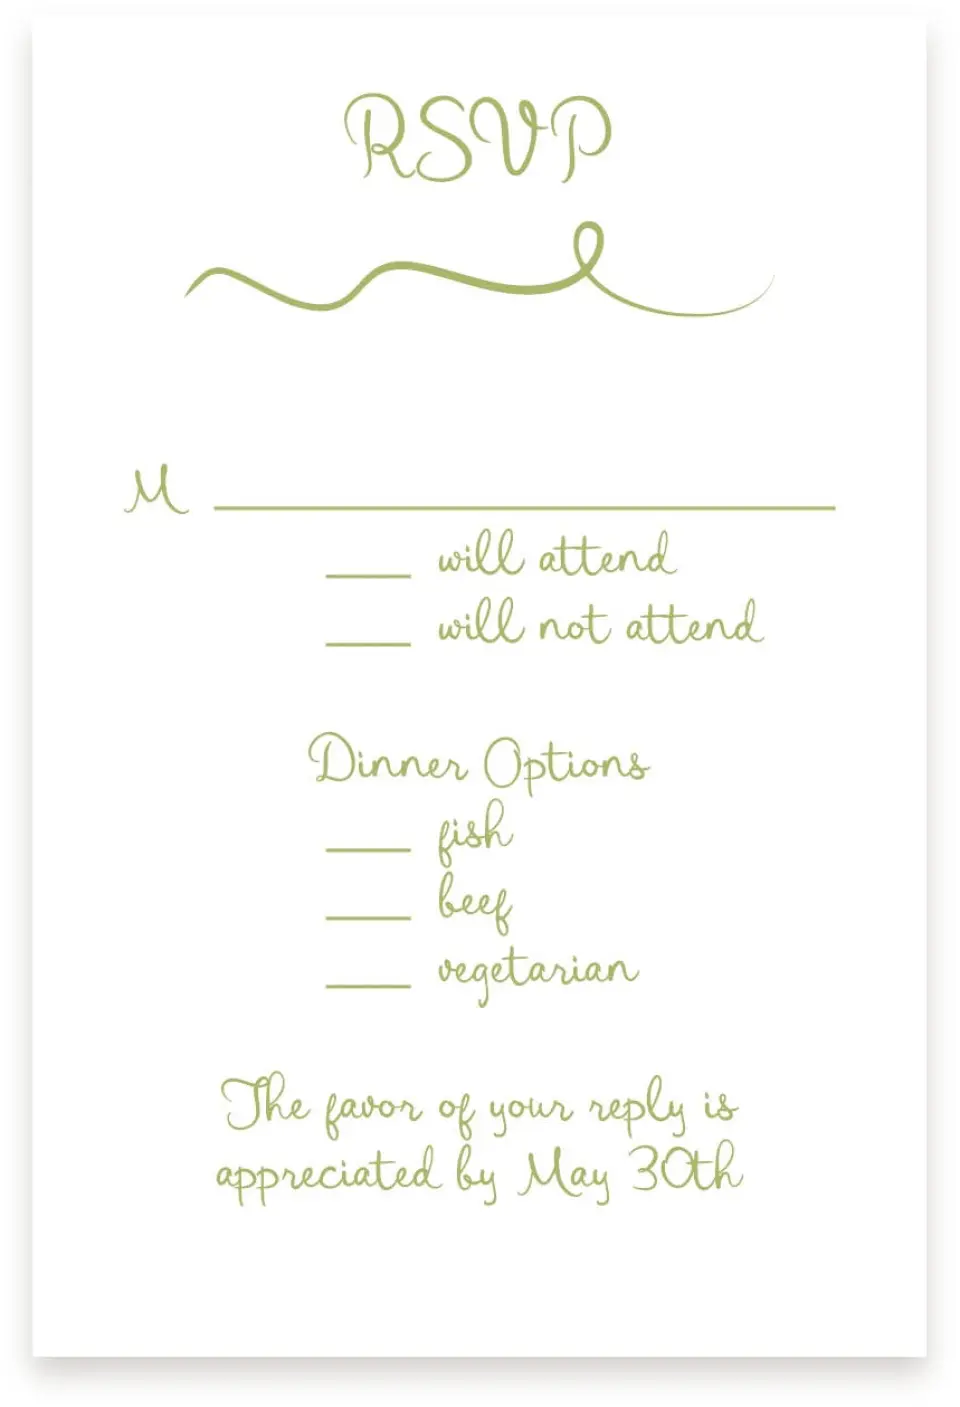 RSVP
M
will attend
will not attend
Dinner Options
fish
beef
vegetarian
The favor of your reply is
appreciated by May 30th